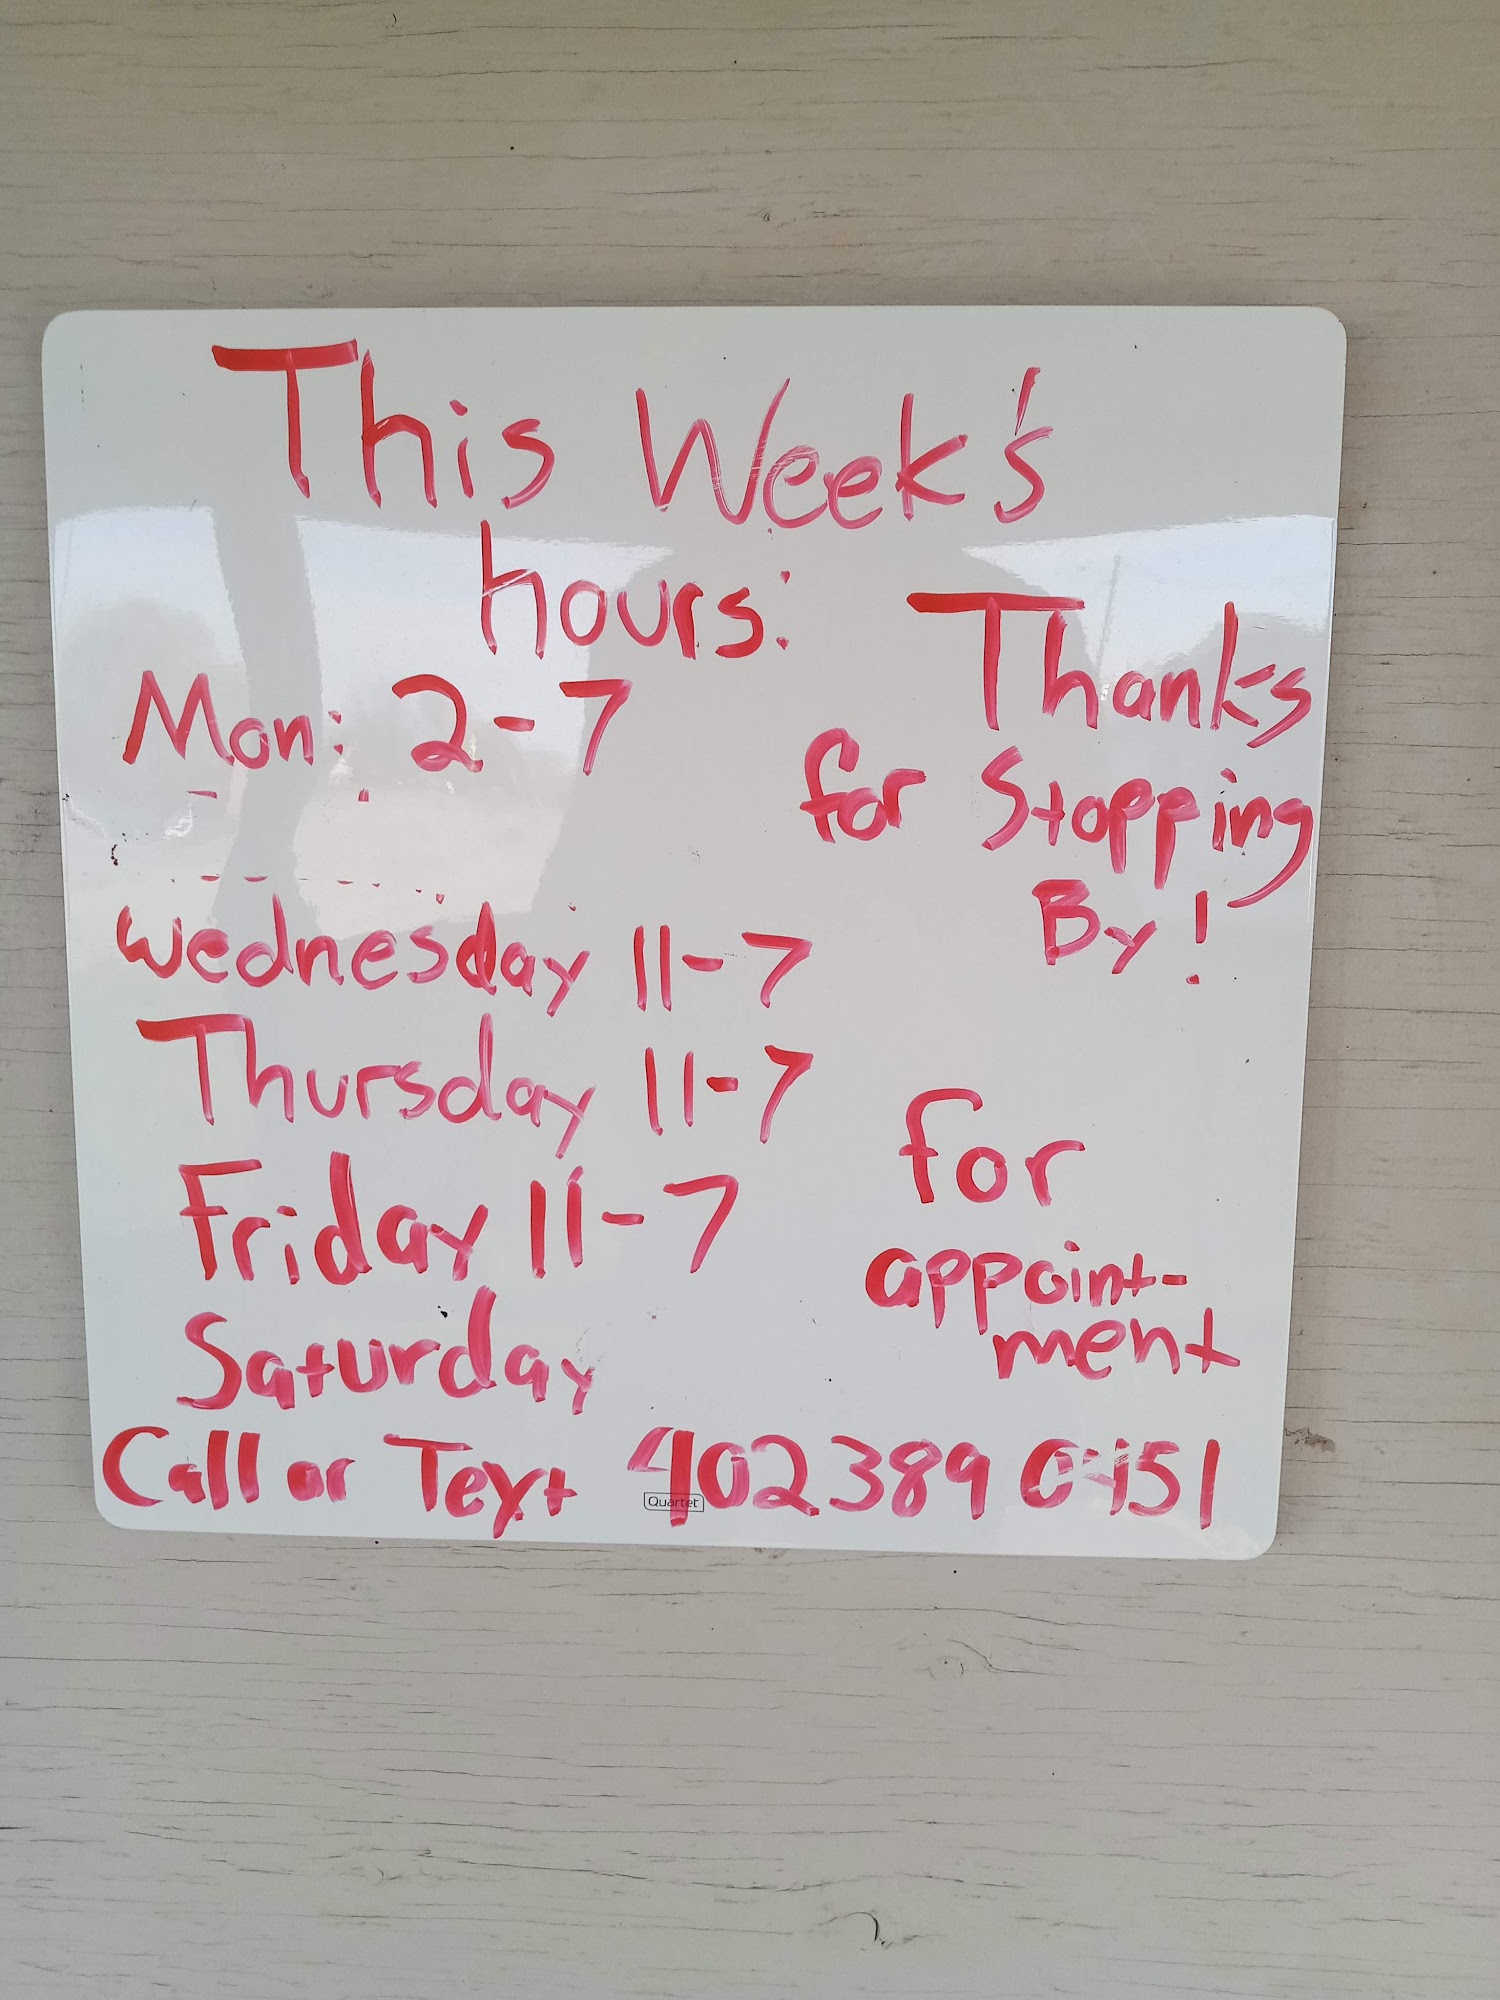 This Week's
hours:
Mon: 2-7
Wednesday 11-7
Thursday 11-7
Friday 11-7
Saturday
Thanks
for Stopping
By!
for
appoint-
ment
Call or Text 402 389 0451
Quartet